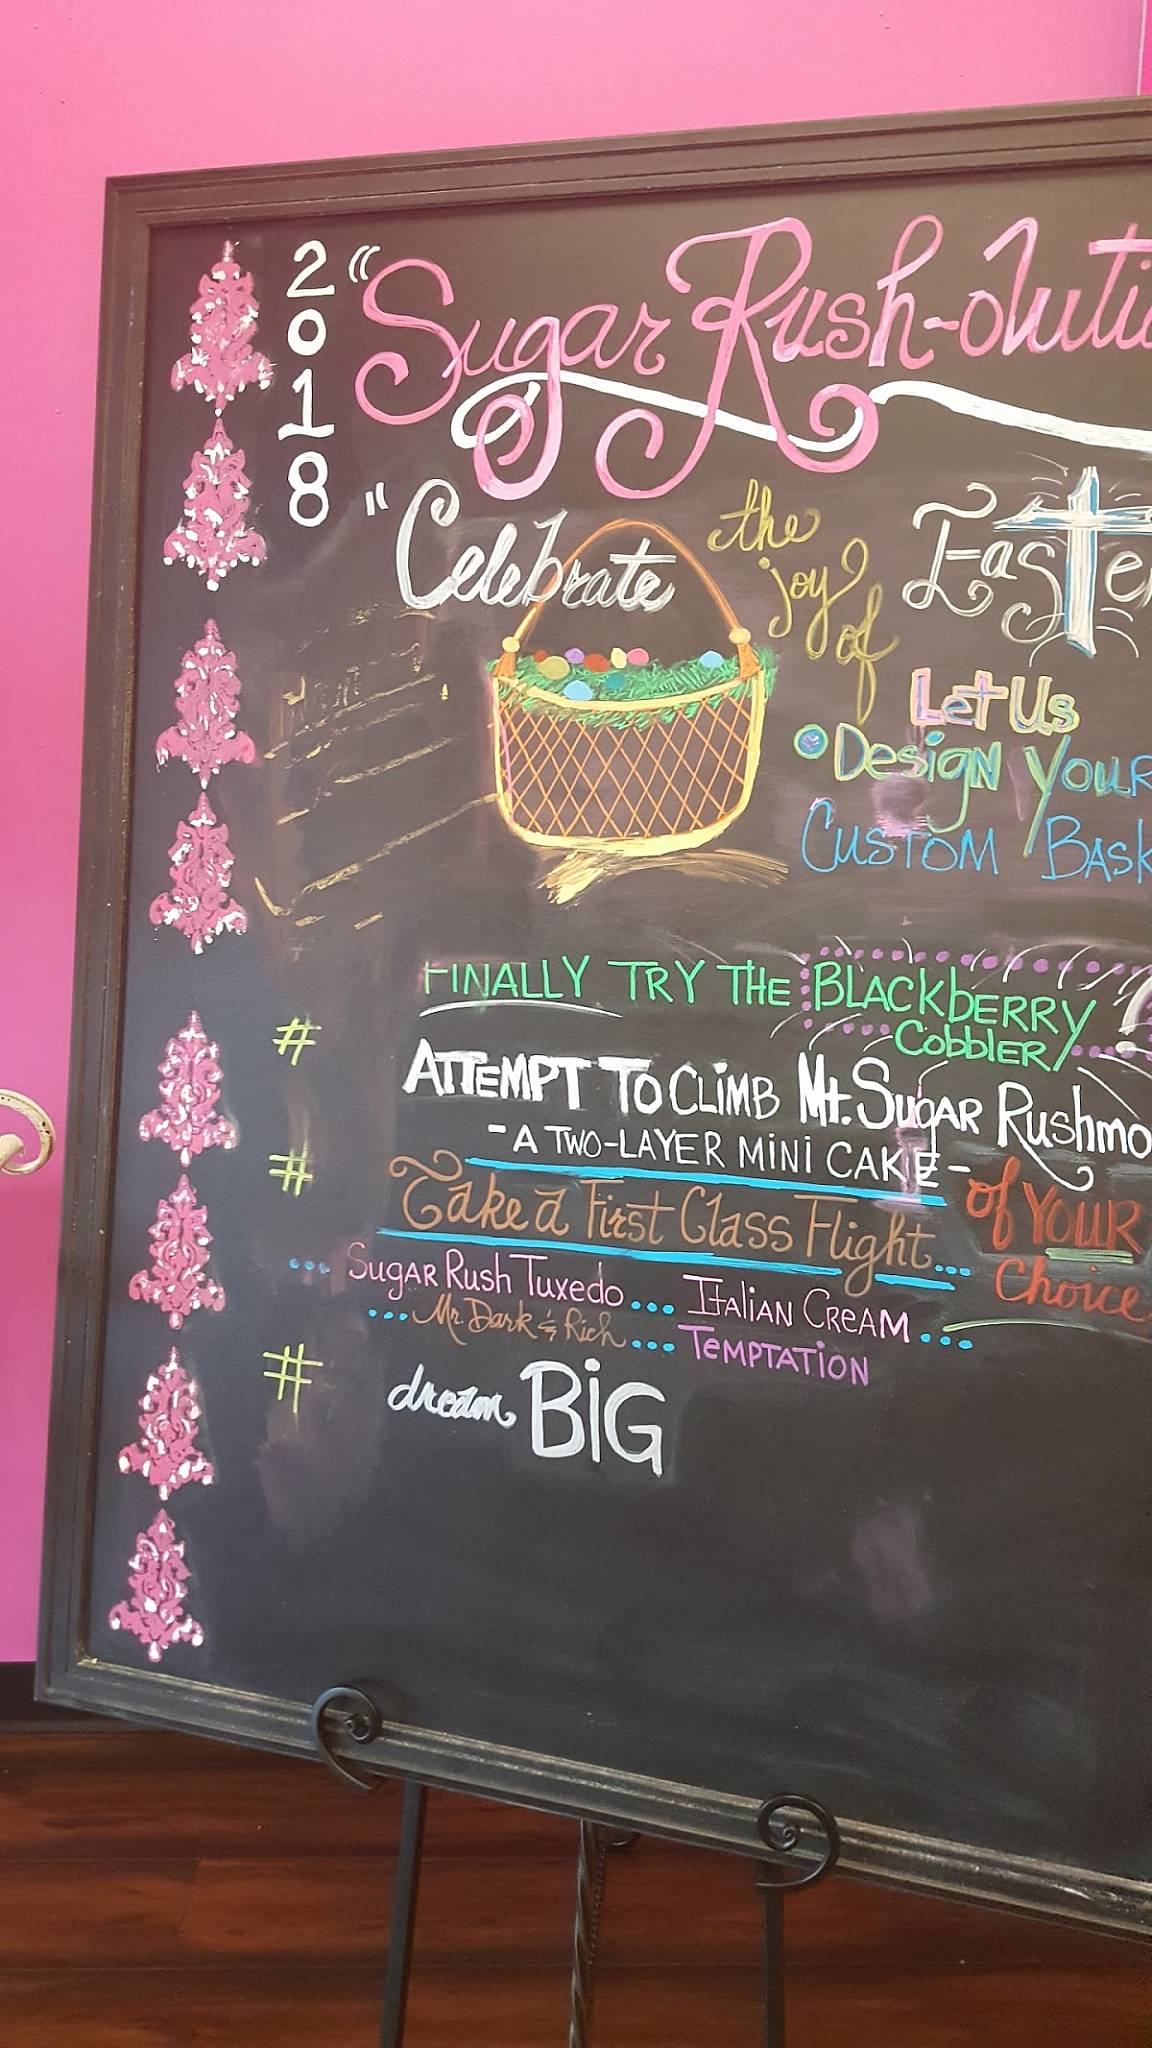 2018 "Sugar Rush-olutio
"Celebrate the joy of Easter
Let Us
Design Your
Custom Bask
Finally Try The Blackberry
Cobbler
# Attempt To Climb Mt. Sugar Rushmo
- A Two-Layer Mini Cake - of Your
Choice
# Take a First Class Flight...
... Sugar Rush Tuxedo .... Italian Cream ...
... Mr. Dark & Rich .... Temptation
# dream BiG